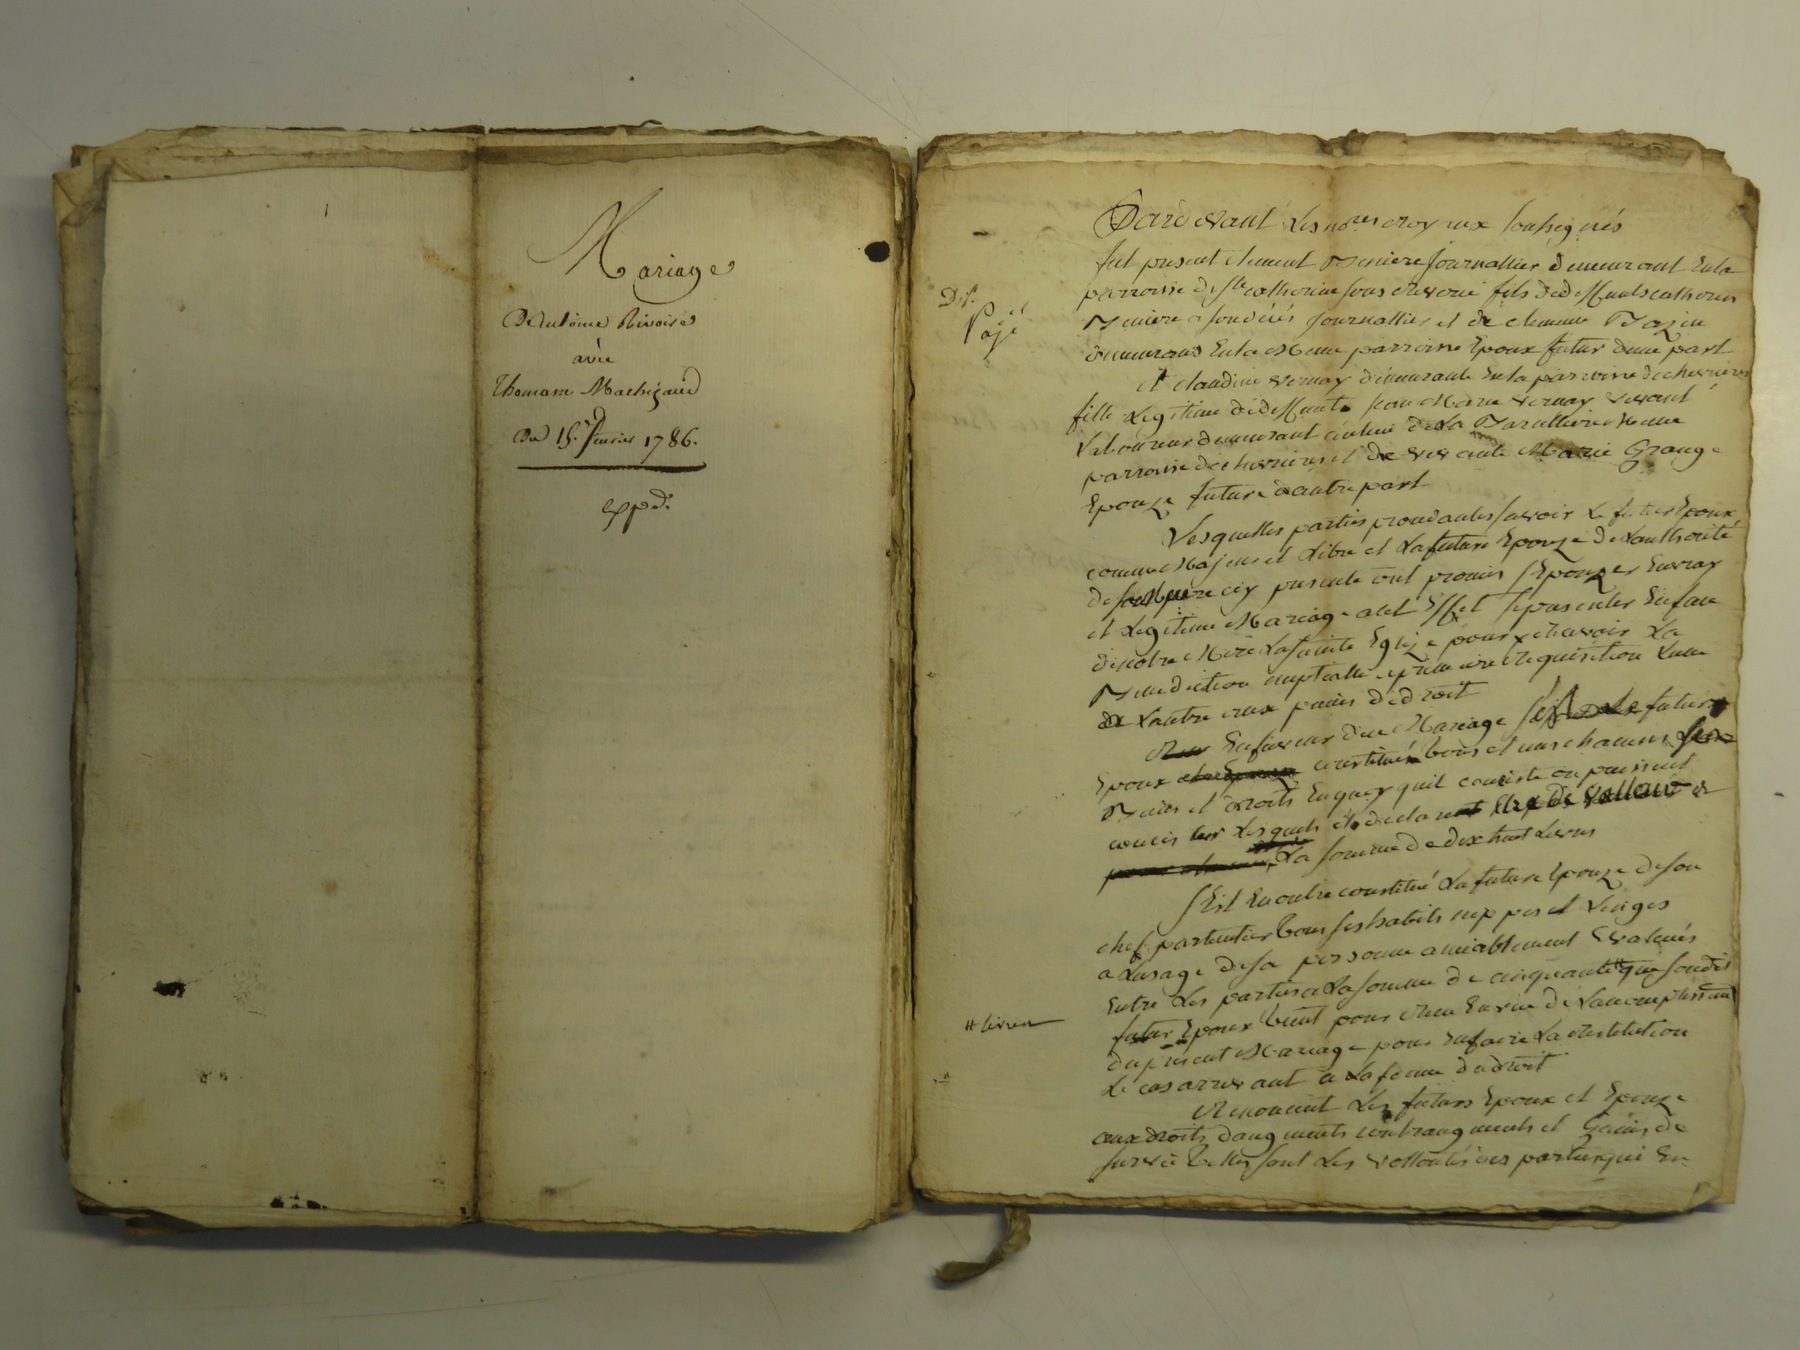 Mariage
D'Antoine Rivoire
avec
Thomase Mathigaud
Du 15. fevrier 1786.
expd.
Pardevant Les nores royaux soussignés
fut present Clement Beniere journallier demeurant En la
parroisse de Ste catherine sous riverie fils de deffunt catherin
Beniere a son décés journallier et de clemence Bazin
demeurans En la Meme parroisse Epoux futur dune part
et claudine vernay demeurante En la parroisse de chevrieres
fille Legitime de deffunt Jean Marie vernay vivant
Laboureur demeurant au lieu de La Meme
parroisse de chevrieres et de vivante Marie Grange
Epouze future dautre part
Lesquelles parties procedantes savoir Le futur Epoux
comme Majeur et Libre et La future Epouze de Lauthorité
de sa Mere icy presente ont promis sEpouzer En vray
et Legitime Mariage a cet Effet se presenter En face
de notre Mere La sainte Eglize pour y recevoir La
Benediction nuptialle a premiere requisition Lune
de Lautre aux peines de droit
En faveur du Mariage futur
Epoux constitué tous et uns chacuns
Biens et droits En quoy quil consiste ou puissent
Lesquels declare de valleur
La somme de dix huit Livres
sEst En outre constitué La future Epouze de son
chef particulier tous ses habits nippes et Linges
a Lusage de sa personne amiablement Evalués
Entre Les parties a La somme de cinquante # que son dit
futur Epoux tient pour recu En vue de Laccomplissement
du present Mariage pour En faire La restitution
Le cas arrivant a La forme du droit
Renoncent Les futurs Epoux et Epouze
aux droits daugments contraugments et Gains de
survie telles sont Les vollontés des parties qui En
Payé
# livres